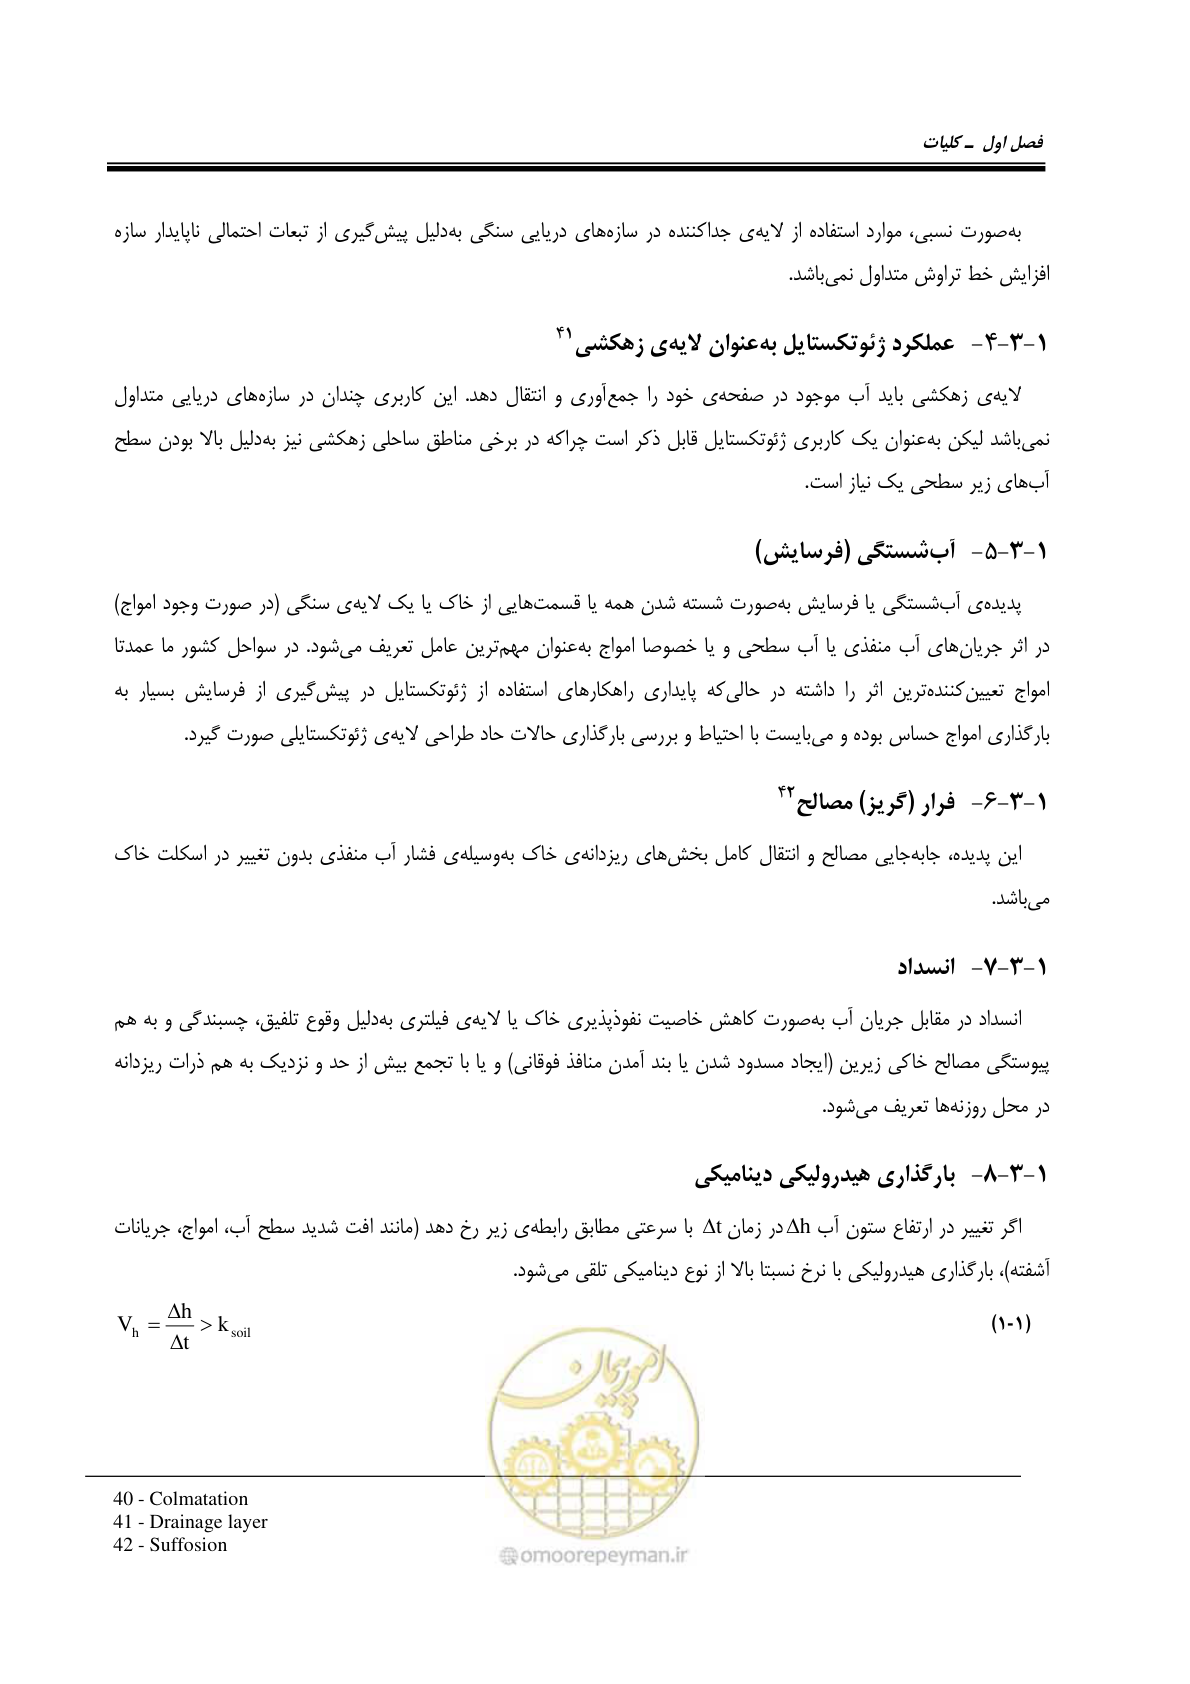 فصل اول ـ کلیات
به‌صورت نسبی، موارد استفاده از لایه‌ی جداکننده در سازه‌های دریایی سنگی به‌دلیل پیش‌گیری از تبعات احتمالی ناپایدار سازه
افزایش خط تراوش متداول نمی‌باشد.
۱-۳-۴- عملکرد ژئوتکستایل به‌عنوان لایه‌ی زهکشی۴۱
لایه‌ی زهکشی باید آب موجود در صفحه‌ی خود را جمع‌آوری و انتقال دهد. این کاربری چندان در سازه‌های دریایی متداول
نمی‌باشد لیکن به‌عنوان یک کاربری ژئوتکستایل قابل ذکر است چراکه در برخی مناطق ساحلی زهکشی نیز به‌دلیل بالا بودن سطح
آب‌های زیر سطحی یک نیاز است.
۱-۳-۵- آب‌شستگی (فرسایش)
پدیده‌ی آب‌شستگی یا فرسایش به‌صورت شسته شدن همه یا قسمت‌هایی از خاک یا یک لایه‌ی سنگی (در صورت وجود امواج)
در اثر جریان‌های آب منفذی یا آب سطحی و یا خصوصا امواج به‌عنوان مهم‌ترین عامل تعریف می‌شود. در سواحل کشور ما عمدتا
امواج تعیین‌کننده‌ترین اثر را داشته در حالی‌که پایداری راهکارهای استفاده از ژئوتکستایل در پیش‌گیری از فرسایش بسیار به
بارگذاری امواج حساس بوده و می‌بایست با احتیاط و بررسی بارگذاری حالات حاد طراحی لایه‌ی ژئوتکستایلی صورت گیرد.
۱-۳-۶- فرار (گریز) مصالح۴۲
این پدیده، جابه‌جایی مصالح و انتقال کامل بخش‌های ریزدانه‌ی خاک به‌وسیله‌ی فشار آب منفذی بدون تغییر در اسکلت خاک
می‌باشد.
۱-۳-۷- انسداد
انسداد در مقابل جریان آب به‌صورت کاهش خاصیت نفوذپذیری خاک یا لایه‌ی فیلتری به‌دلیل وقوع تلفیق، چسبندگی و به هم
پیوستگی مصالح خاکی زیرین (ایجاد مسدود شدن یا بند آمدن منافذ فوقانی) و یا با تجمع بیش از حد و نزدیک به هم ذرات ریزدانه
در محل روزنه‌ها تعریف می‌شود.
۱-۳-۸- بارگذاری هیدرولیکی دینامیکی
اگر تغییر در ارتفاع ستون آب Δh در زمان Δt با سرعتی مطابق رابطه‌ی زیر رخ دهد (مانند افت شدید سطح آب، امواج، جریانات
آشفته)، بارگذاری هیدرولیکی با نرخ نسبتا بالا از نوع دینامیکی تلقی می‌شود.
(۱-۱) V_h = Δh/Δt > k_soil
امور پیمان
40 - Colmatation
41 - Drainage layer
42 - Suffosion
@omoorepeyman.ir